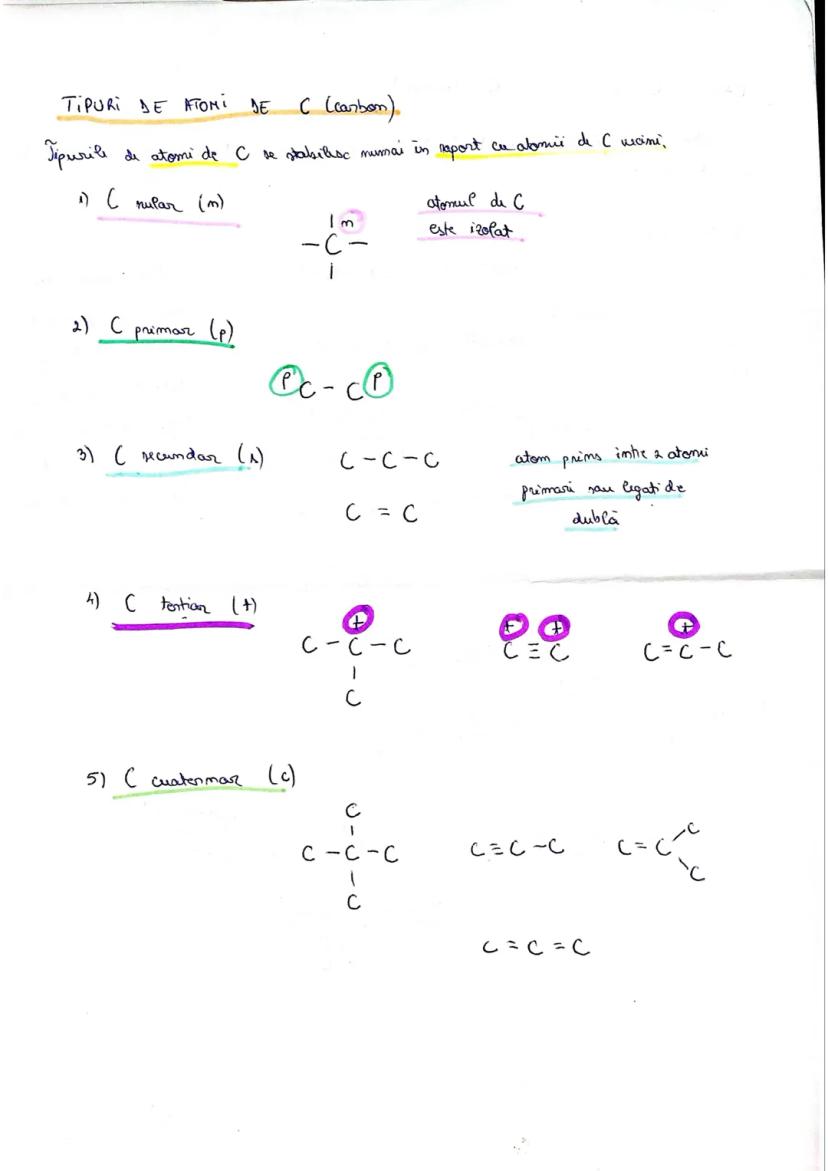 TIPURI DE ATOMI DE C (carbon)
Tipurile de atomi de C se stabilisc numai în raport cu atomii de C vecini.
1) C nular (n)
atomul de C
este izolat
| n
– C –
|
2) C primar (p)
p C – C p
3) C secundar (s)
C – C – C
C = C
atom prins între 2 atomi
primari sau legati de
dublă
4) C tertiar (t)
t
C – C – C
|
C
t t
C ≡ C
t
C = C – C
5) C cuaternar (c)
C
|
C – C – C
|
C
C ≡ C – C
C = C
C
C
C = C = C